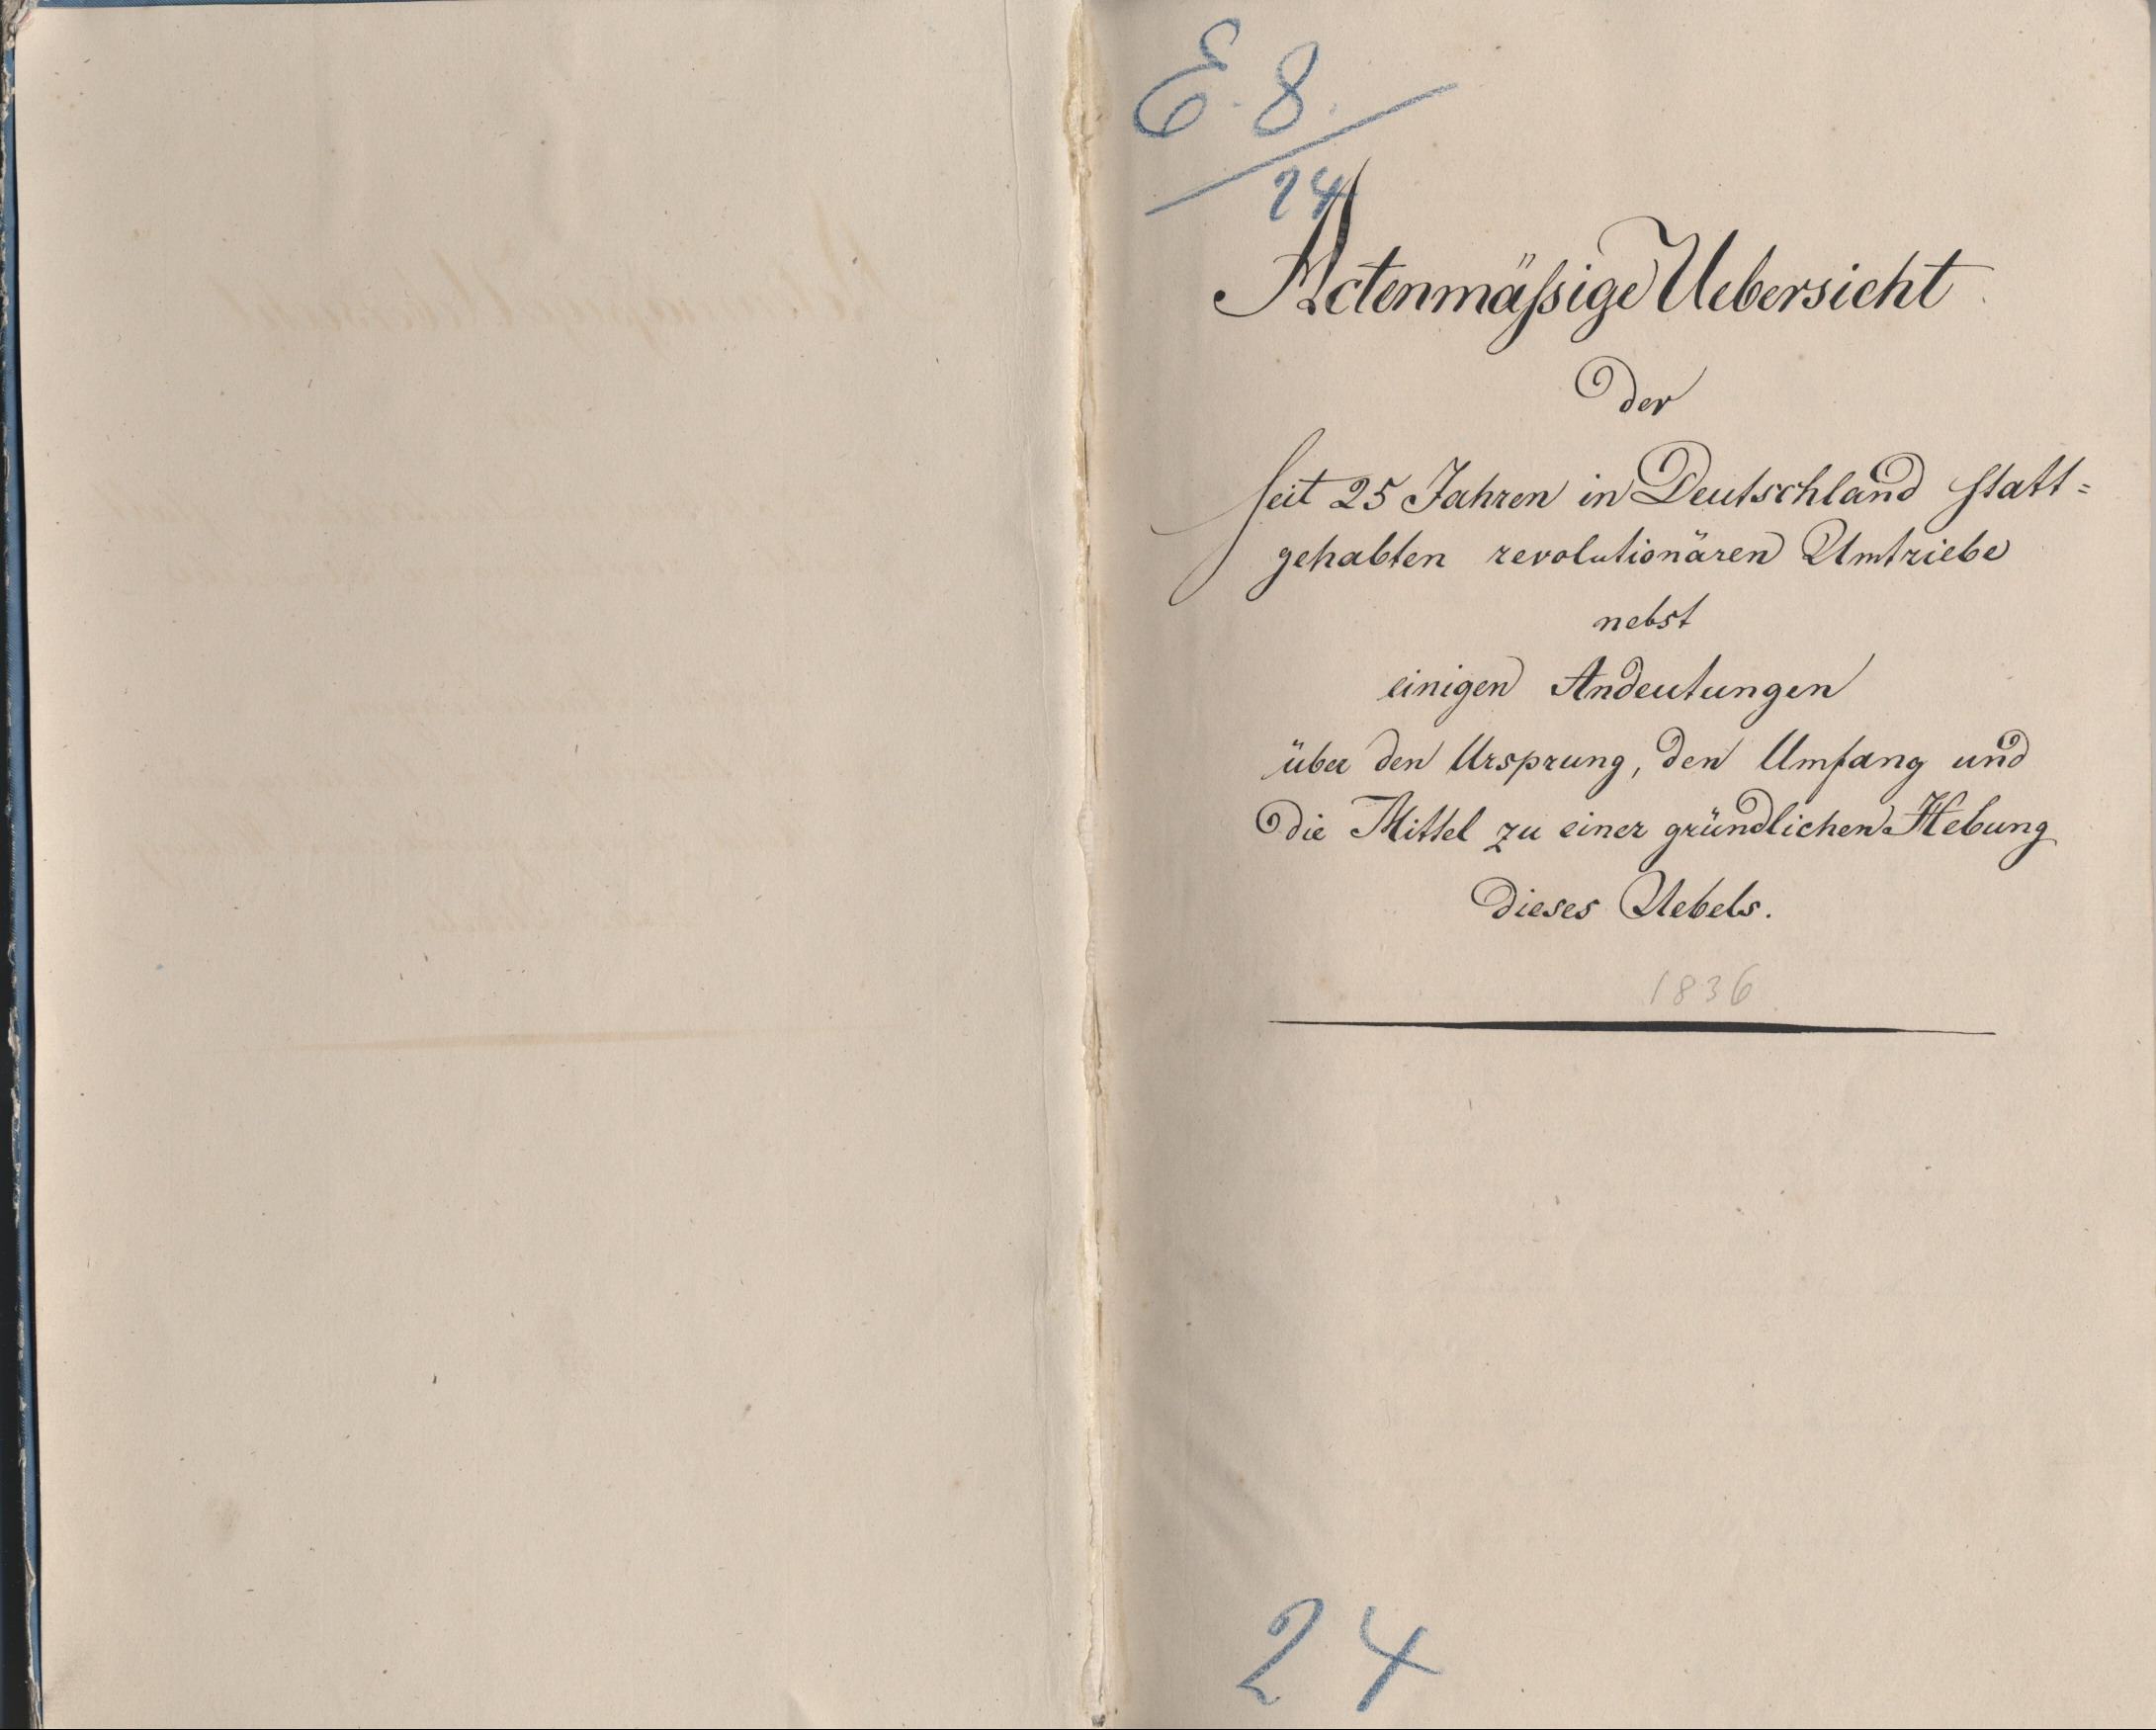 E. 8.
24
Actenmäßige Uebersicht
der
seit 25 Jahren in Deutschland statt=
gehabten revolutionären Umtriebe
nebst
einigen Andeutungen
über den Ursprung, den Umfang und
die Mittel zu einer gründlichen Hebung
dieses Uebels.
1836
24